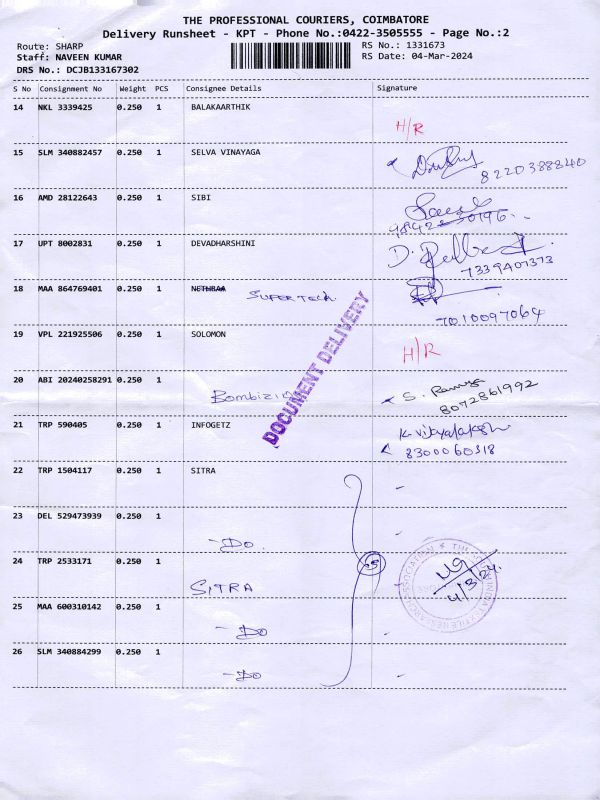 THE PROFESSIONAL COURIERS, COIMBATORE
Delivery Runsheet - KPT - Phone No.:0422-3505555 - Page No.:2
Route: SHARP RS No.: 1331673
Staff: NAVEEN KUMAR RS Date: 04-Mar-2024
DRS No.: DCJB133167302
S No Consignment No Weight PCS Consignee Details Signature
14 NKL 3339425 0.250 1 BALAKAARTHIK
H/R
15 SLM 340882457 0.250 1 SELVA VINAYAGA
8220388840
16 AMD 28122643 0.250 1 SIBI
17 UPT 8002831 0.250 1 DEVADHARSHINI
7339407373
18 MAA 864769401 0.250 1 SUPER TECH
7010097064
19 VPL 221925506 0.250 1 SOLOMON
H/R
DOCUMENT DELIVERY
20 ABI 20240258291 0.250 1
S. Ramya
8072861992
21 TRP 590405 0.250 1 INFOGETZ
K. Vijayalakshmi
8300060318
22 TRP 1504117 0.250 1 SITRA
23 DEL 529473939 0.250 1
-Do.
24 TRP 2533171 0.250 1
SITRA
5
4/3/24.
25 MAA 600310142 0.250 1
-Do
26 SLM 340884299 0.250 1
-Do